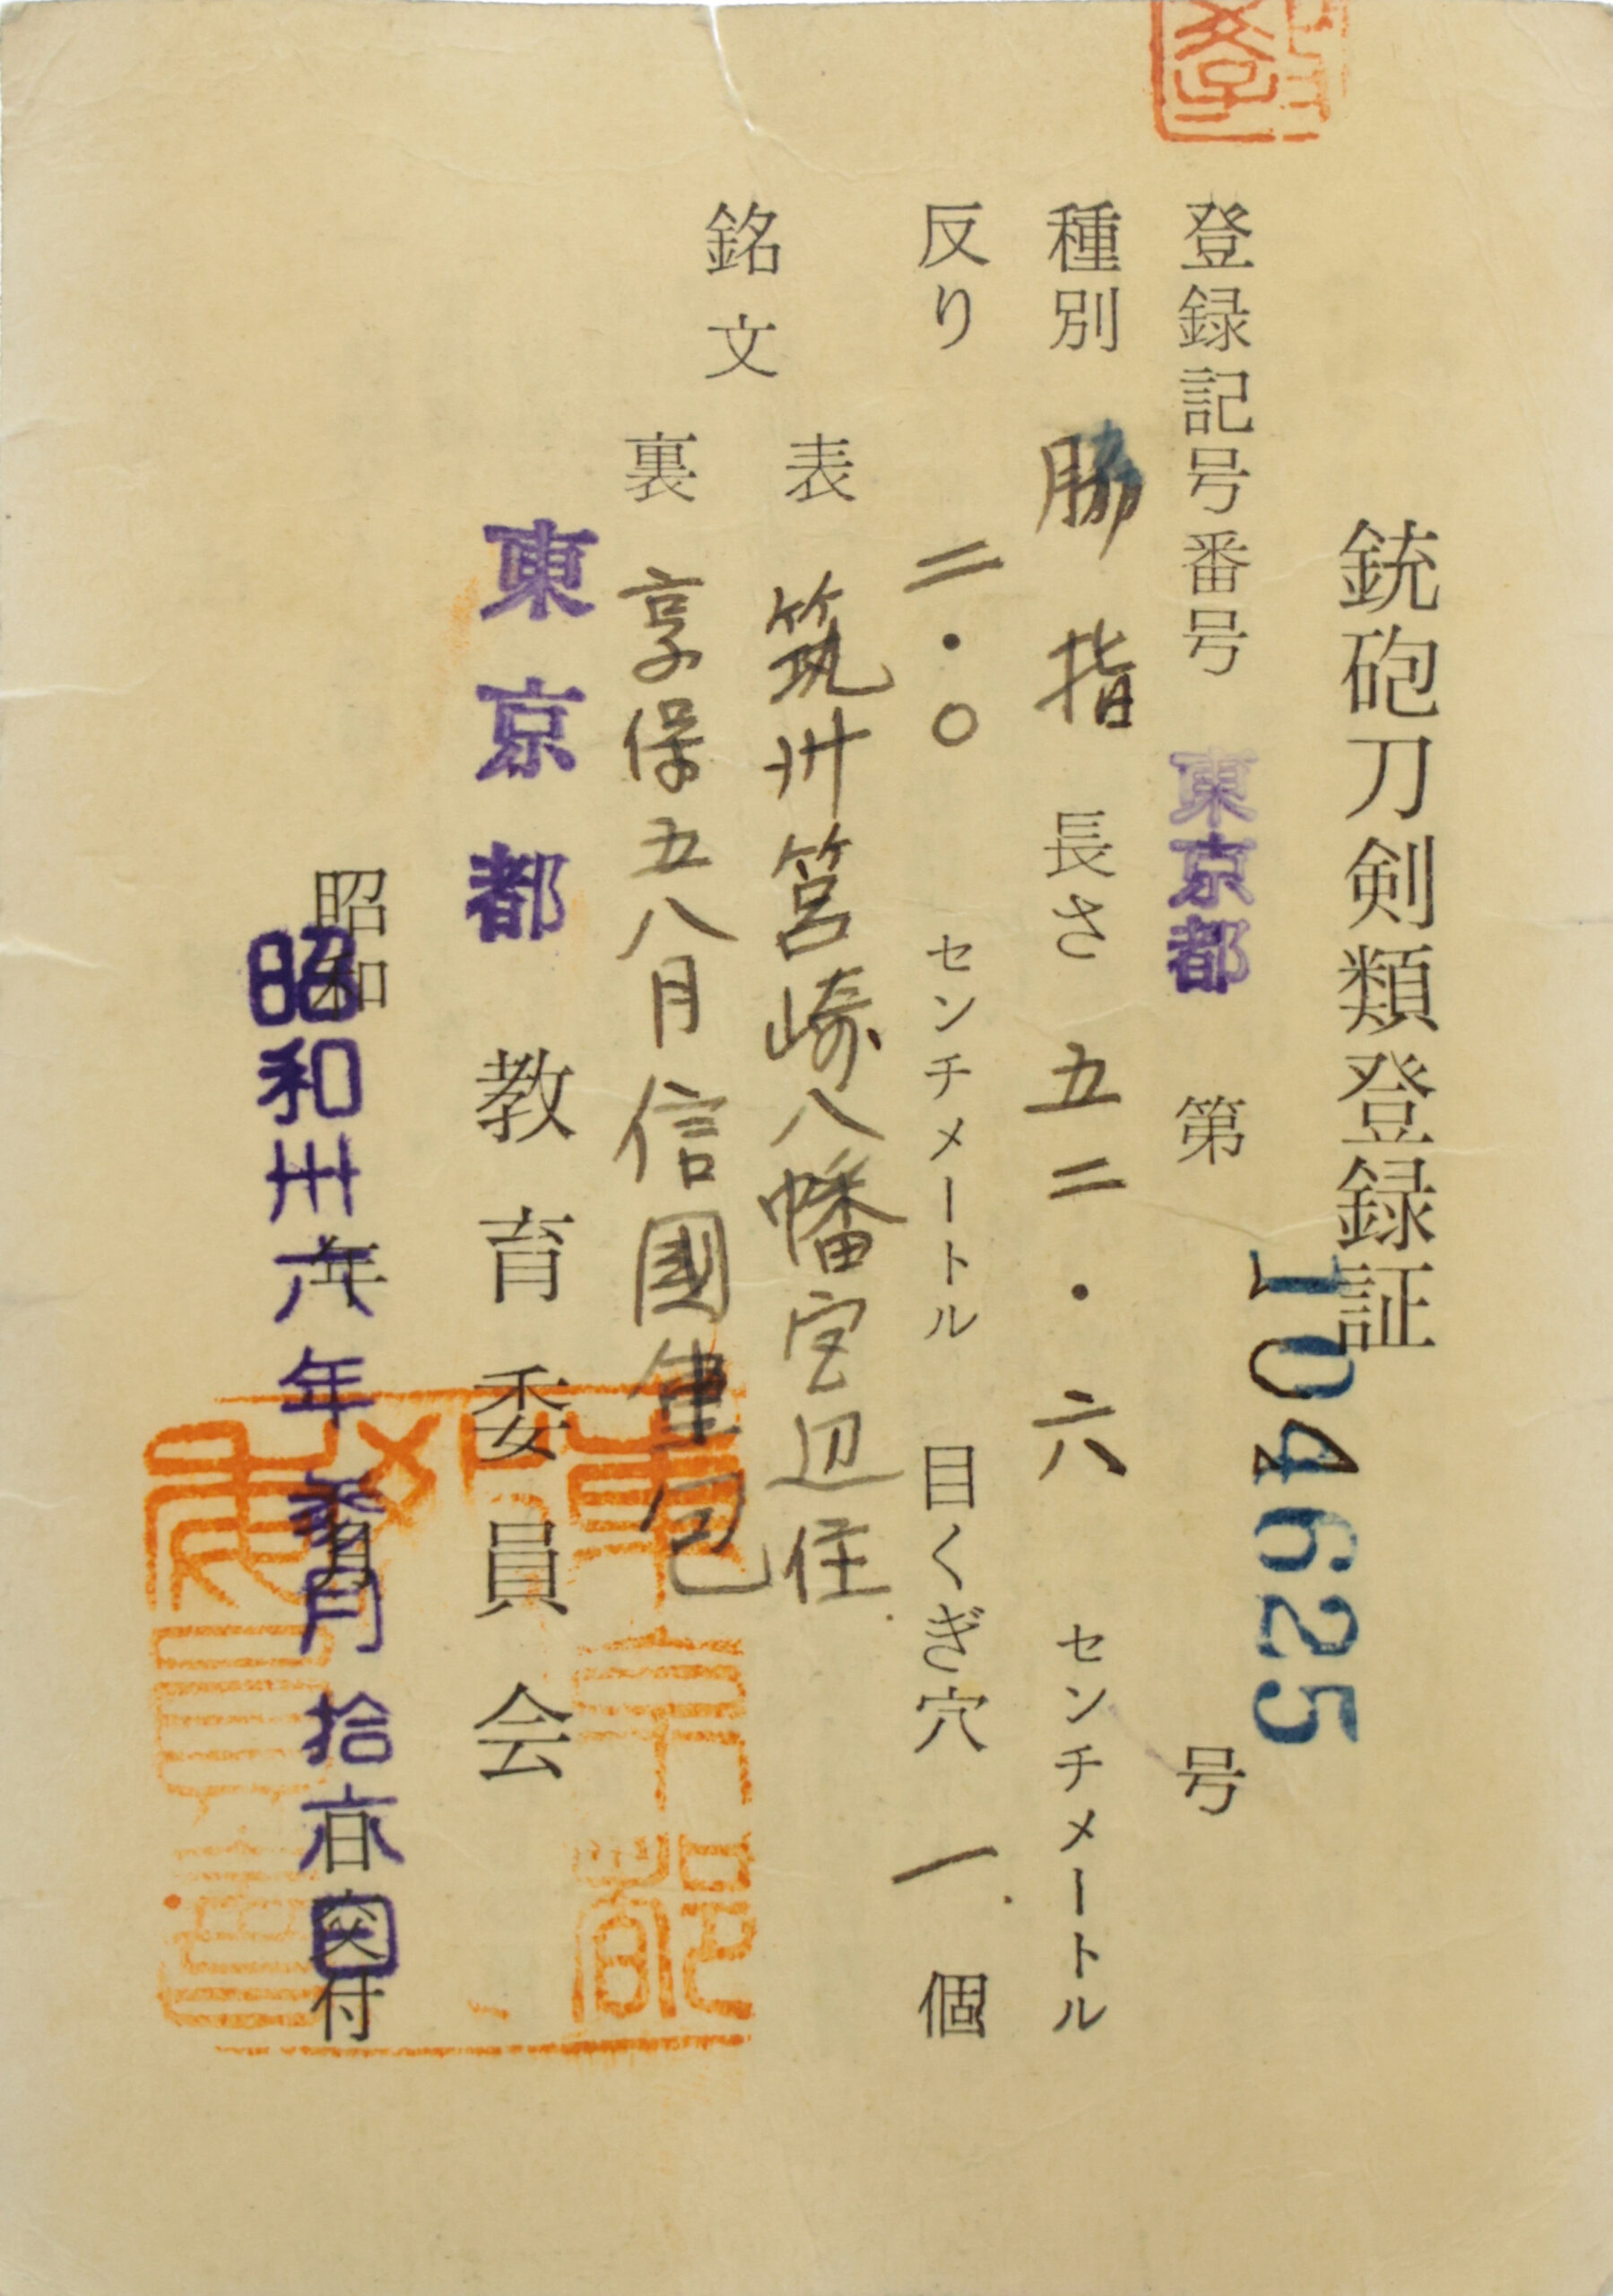 銃砲刀剣類登録証
登録記号番号 東京都 第 104625 号
種別 脇指 長さ 五二・六 センチメートル
反り 二・〇 センチメートル 目くぎ穴 一 個
銘文
表 筑州筥崎八幡宮辺住
裏 享保五八月信國重包
東京都教育委員会
昭和 年 月 日交付
昭和卅六年 月拾六日